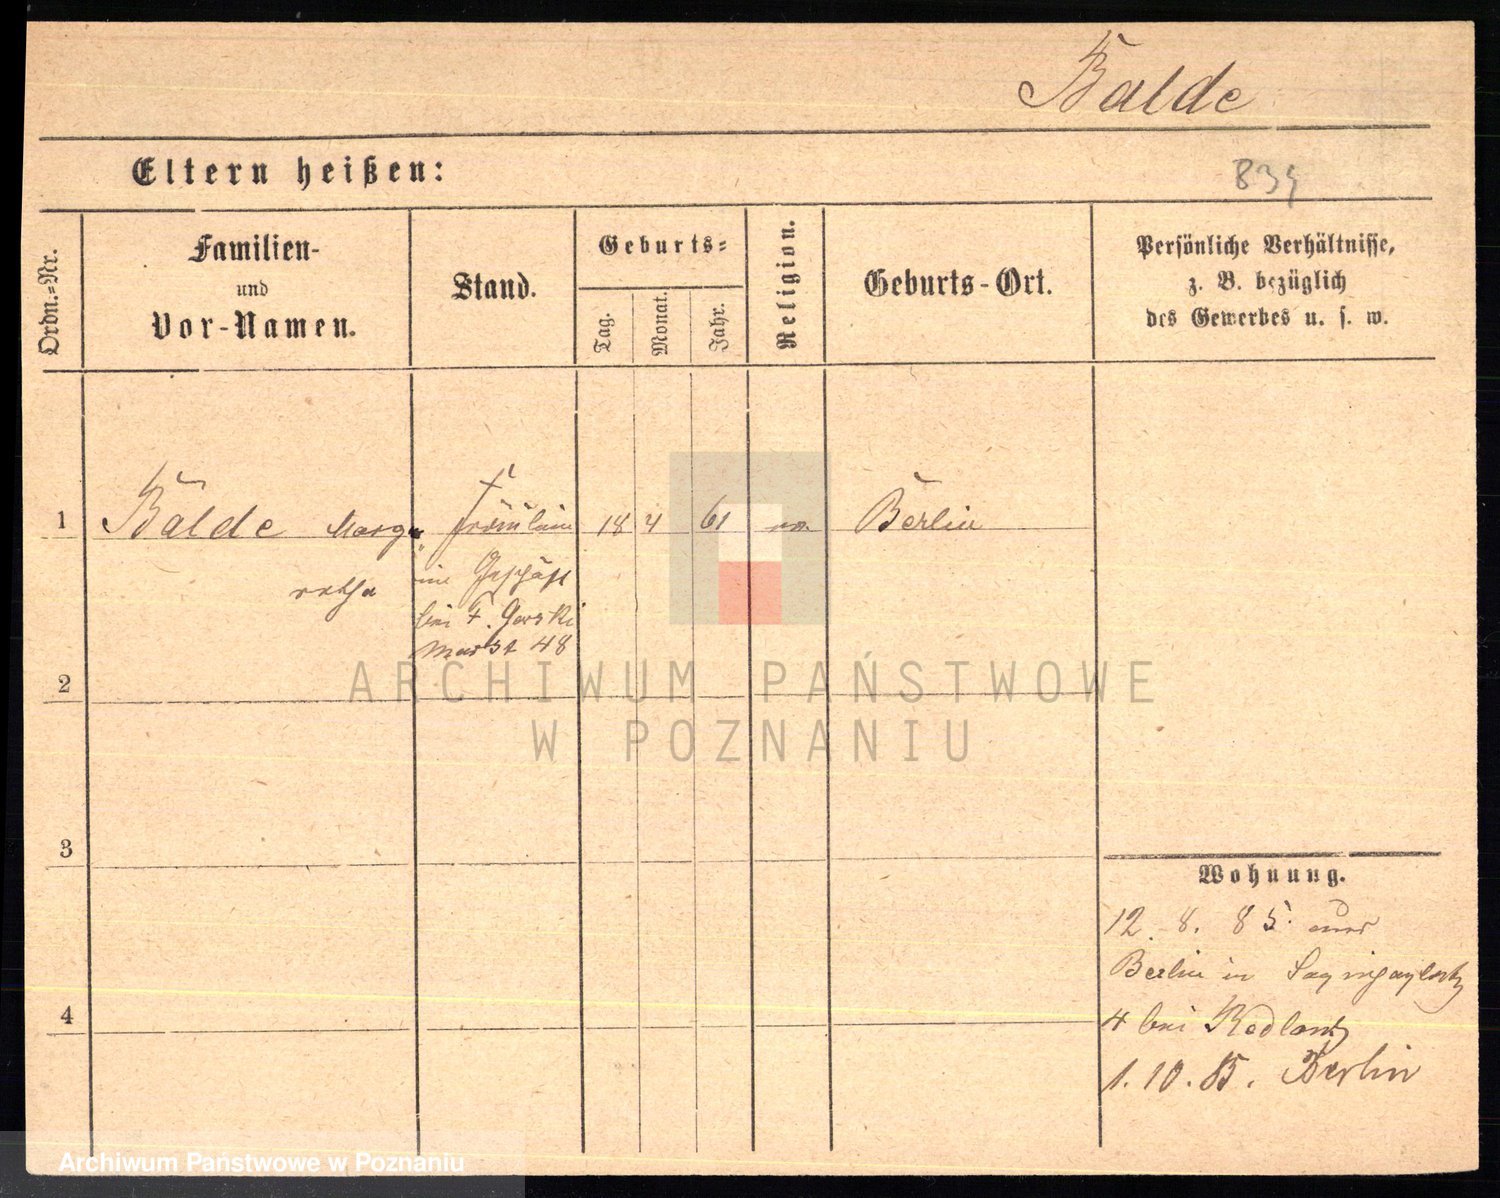 Balde
Eltern heißen:
834
Ordn.-Nr.
Familien-
und
Vor-Namen.
Stand.
Geburts-
Tag.
Monat.
Jahr.
Religion.
Geburts-Ort.
Persönliche Verhältnisse,
z. B. bezüglich
des Gewerbes u. s. w.
1
Balde Marga
retha
Fräulein
im Geschäft
bei F. Gorski
Markt 48
18 4 61
Berlin
2
ARCHIWUM PAŃSTWOWE
W POZNANIU
3
Wohnung.
12. 8. 85. aus
Berlin in
4
4 bei Redlantz
1. 10. 85. Berlin
Archiwum Państwowe w Poznaniu